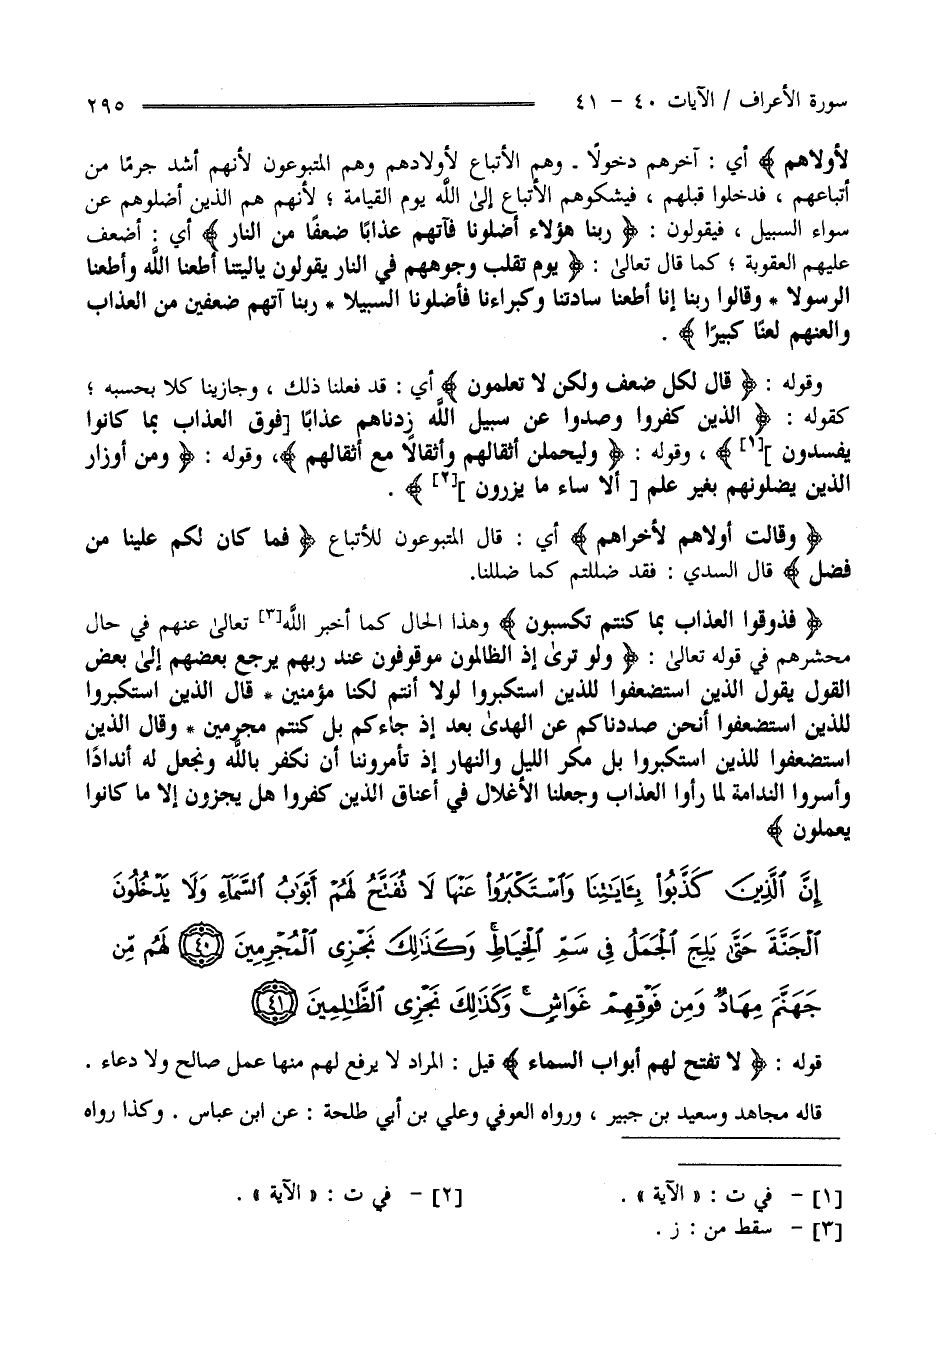 سورة الأعراف / الآيات ٤٠ – ٤١ ٢٩٥
لأولاهم ﴾ أي : آخرهم دخولًا ـ وهم الأتباع لأولادهم وهم المتبوعون لأنهم أشد جرمًا من
أتباعهم ، فدخلوا قبلهم ، فيشكوهم الأتباع إلىٰ اللَّه يوم القيامة ؛ لأنهم هم الذين أضلوهم عن
سواء السبيل ، فيقولون : ﴿ ربنا هؤلاء أضلونا فآتهم عذابًا ضعفًا من النار ﴾ أي : أضعف
عليهم العقوبة ؛ كما قال تعالىٰ : ﴿ يوم تقلب وجوههم في النار يقولون ياليتنا أطعنا اللَّه وأطعنا
الرسولا * وقالوا ربنا إنا أطعنا سادتنا وكبراءنا فأضلونا السبيلا * ربنا آتهم ضعفين من العذاب
والعنهم لعنًا كبيرًا ﴾ .
وقوله : ﴿ قال لكل ضعف ولكن لا تعلمون ﴾ أي : قد فعلنا ذلك ، وجازينا كلا بحسبه ؛
كقوله : ﴿ الذين كفروا وصدوا عن سبيل اللَّه زدناهم عذابًا [فوق العذاب بما كانوا
يفسدون ][١] ﴾ ، وقوله : ﴿ وليحملن أثقالهم وأثقالًا مع أثقالهم ﴾، وقوله : ﴿ ومن أوزار
الذين يضلونهم بغير علم [ ألا ساء ما يزرون ][٢] ﴾ .
﴿ وقالت أولاهم لأخراهم ﴾ أي : قال المتبوعون للأتباع ﴿ فما كان لكم علينا من
فضل ﴾ قال السدي : فقد ضللتم كما ضللنا.
﴿ فذوقوا العذاب بما كنتم تكسبون ﴾ وهذا الحال كما أخبر اللَّه[٣] تعالىٰ عنهم في حال
محشرهم في قوله تعالىٰ : ﴿ ولو ترىٰ إذ الظالمون موقوفون عند ربهم يرجع بعضهم إلىٰ بعض
القول يقول الذين استضعفوا للذين استكبروا لولا أنتم لكنا مؤمنين * قال الذين استكبروا
للذين استضعفوا أنحن صددناكم عن الهدىٰ بعد إذ جاءكم بل كنتم مجرمين * وقال الذين
استضعفوا للذين استكبروا بل مكر الليل والنهار إذ تأمروننا أن نكفر باللَّه ونجعل له أندادًا
وأسروا الندامة لما رأوا العذاب وجعلنا الأغلال في أعناق الذين كفروا هل يجزون إلا ما كانوا
يعملون ﴾
إِنَّ ٱلَّذِينَ كَذَّبُوا۟ بِـَٔايَـٰتِنَا وَٱسْتَكْبَرُوا۟ عَنْهَا لَا تُفَتَّحُ لَهُمْ أَبْوَٰبُ ٱلسَّمَآءِ وَلَا يَدْخُلُونَ
ٱلْجَنَّةَ حَتَّىٰ يَلِجَ ٱلْجَمَلُ فِى سَمِّ ٱلْخِيَاطِ ۚ وَكَذَٰلِكَ نَجْزِى ٱلْمُجْرِمِينَ ٤٠ لَهُم مِّن
جَهَنَّمَ مِهَادٌ وَمِن فَوْقِهِمْ غَوَاشٍ ۚ وَكَذَٰلِكَ نَجْزِى ٱلظَّـٰلِمِينَ ٤١
قوله : ﴿ لا تفتح لهم أبواب السماء ﴾ قيل : المراد لا يرفع لهم منها عمل صالح ولا دعاء .
قاله مجاهد وسعيد بن جبير ، ورواه العوفي وعلي بن أبي طلحة : عن ابن عباس . وكذا رواه
[١] – في ت : « الآية » . [٢] – في ت : « الآية » .
[٣] – سقط من : ز .